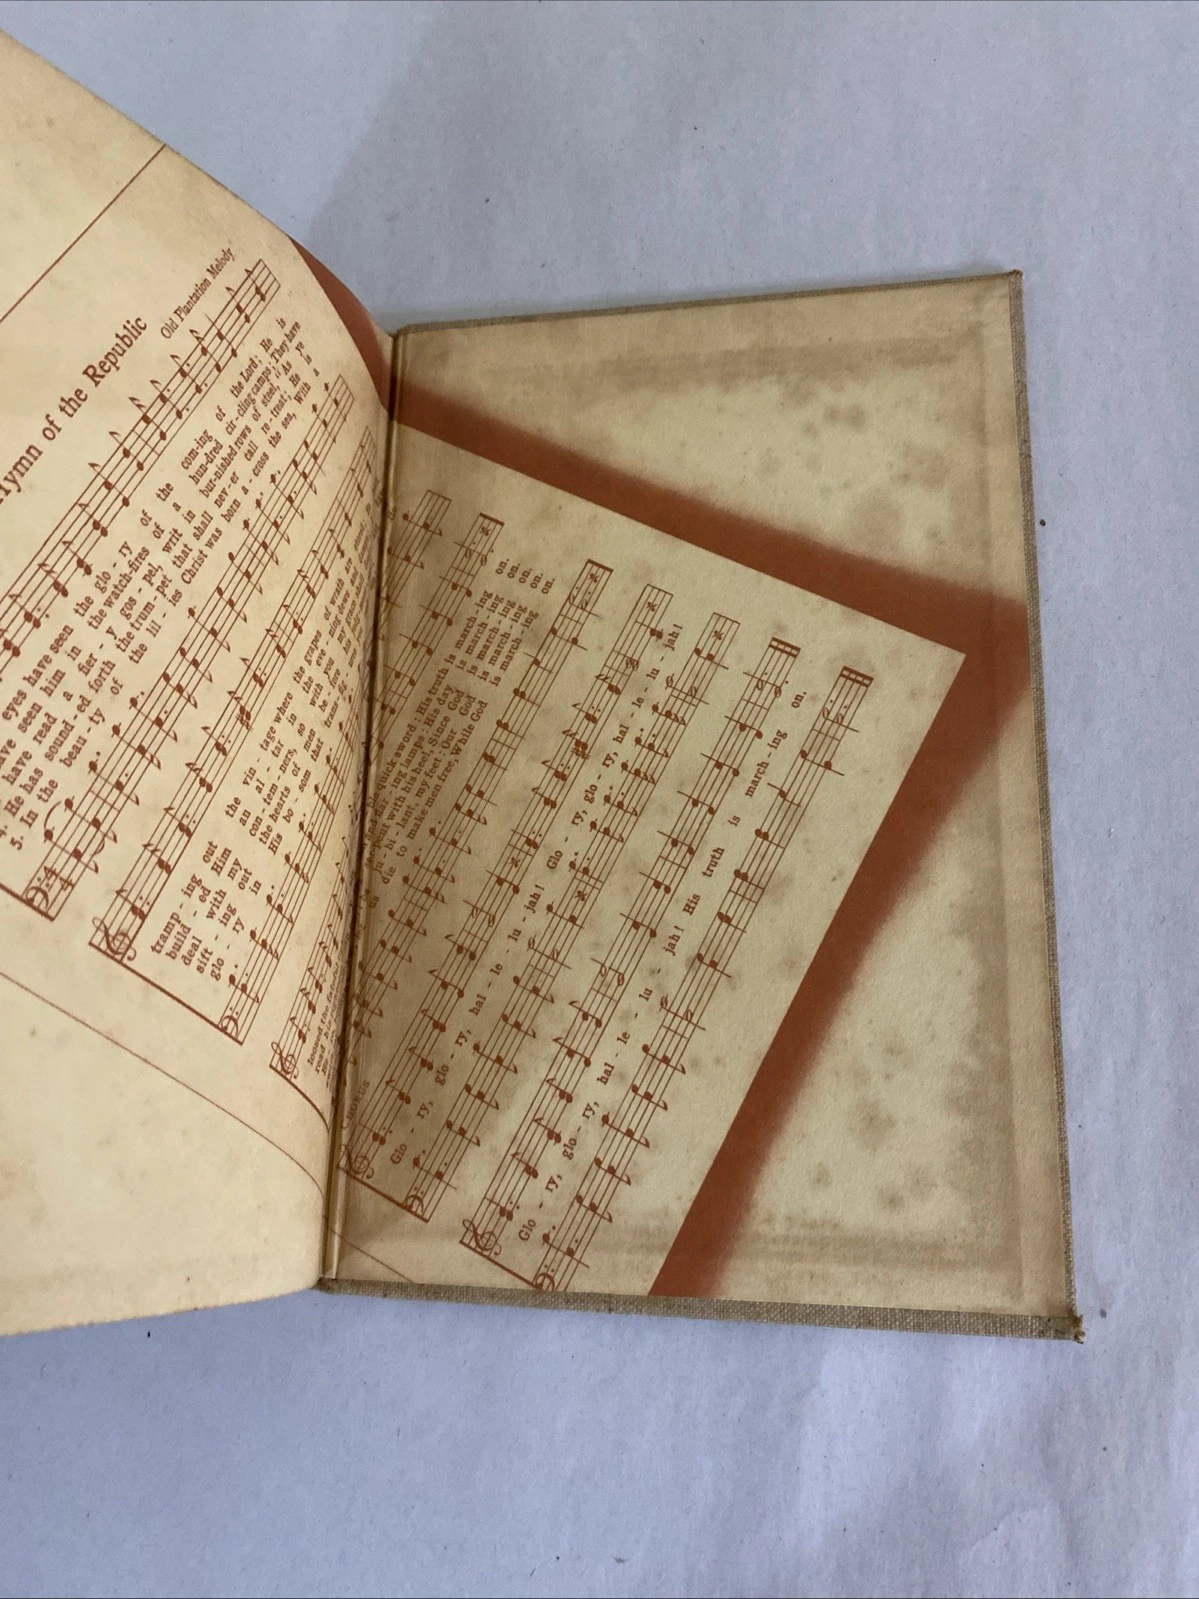 Hymn of the Republic
Old Plantation Melody
eyes have seen the glo - ry of the com-ing of the Lord; He is
have seen him in the watch-fires of a hun-dred cir-cling camps; They have
have read a fier - y gos - pel, writ in bur-nished rows of steel, "As ye
4. He has sound-ed forth the trum-pet that shall nev-er call re-treat; He is
5. In the beau-ty of the lil - ies Christ was born a-cross the sea, With a
tramp - ing out the vin - tage where the grapes of wrath are
build - ed Him an al - tar in the eve - ning
deal with my con-tem-ners, so with you
sift - ing out the hearts of men be - fore
glo - ry in His bo - som that trans-fig
quick sword: His truth is march-ing on.
ing lamps: His day is march-ing on.
with his heel, Since God is march-ing on.
ju - bi - lant, my feet: Our God is march-ing on.
die to make men free, While God is march-ing on.
Glo - ry, glo - ry, hal - le - lu - jah! Glo - ry, glo - ry, hal - le - lu - jah!
Glo - ry, glo - ry, hal - le - lu - jah! His truth is march-ing on.